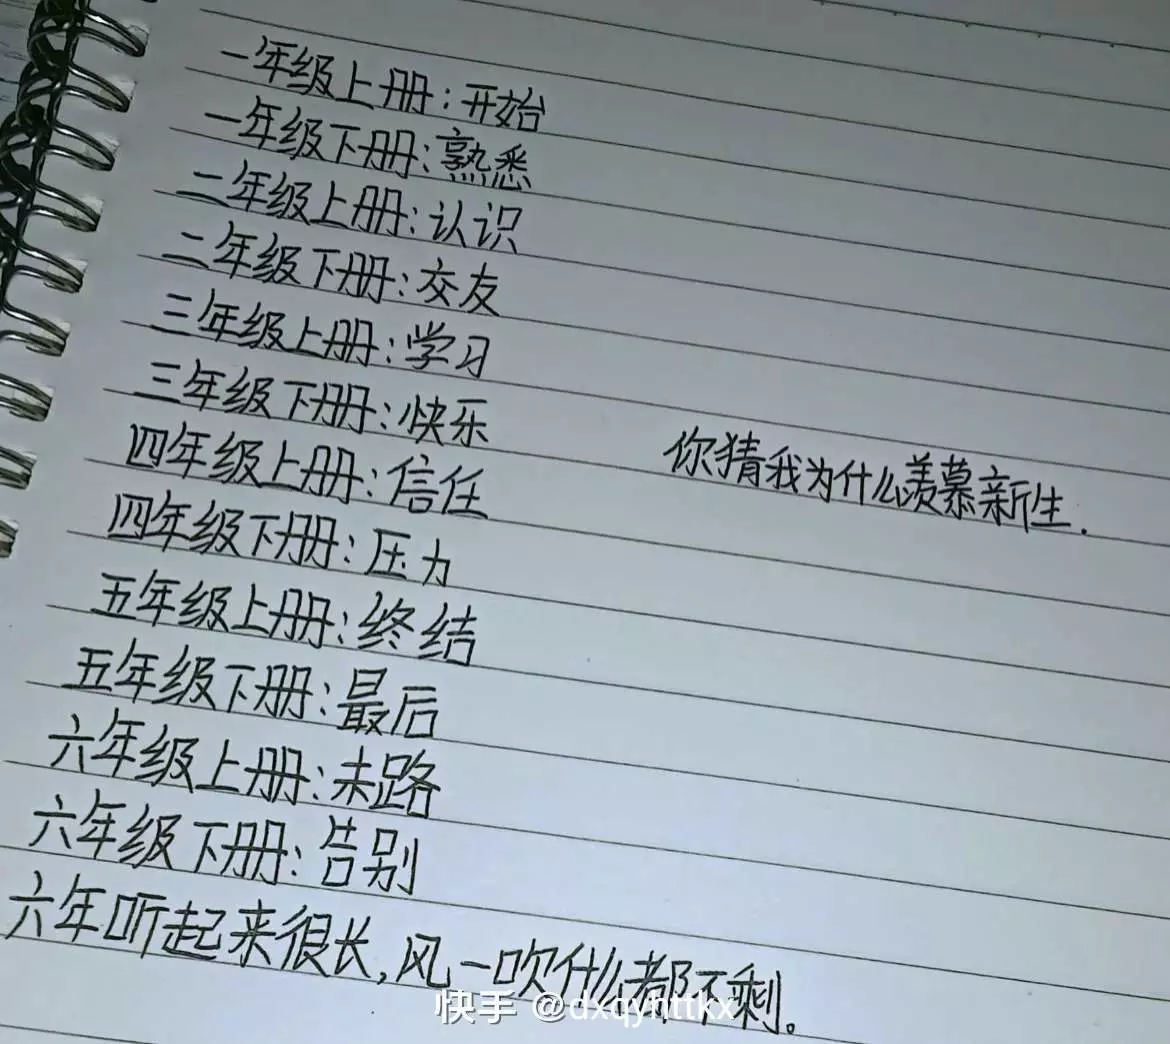 一年级上册:开始
一年级下册:熟悉
二年级上册:认识
二年级下册:交友
三年级上册:学习
三年级下册:快乐
四年级上册:信任
四年级下册:压力
五年级上册:终结
五年级下册:最后
六年级上册:未路
六年级下册:告别
六年听起来很长,风一吹什么都不剩。
你猜我为什么羡慕新生.
快手 @dxqyhttkx